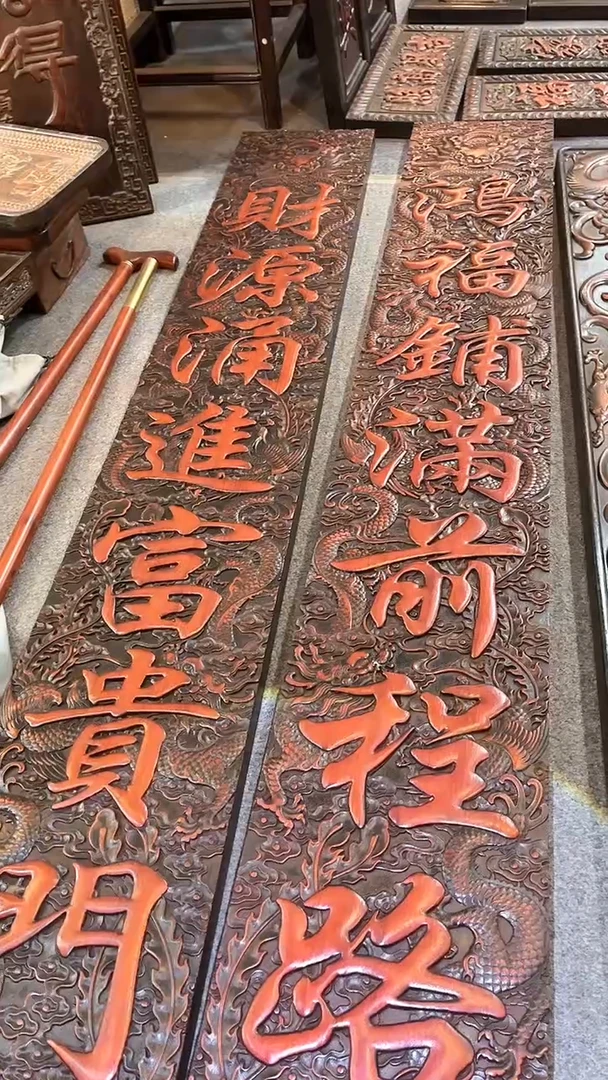 鴻福鋪滿前程路
財源涌進富貴門
得